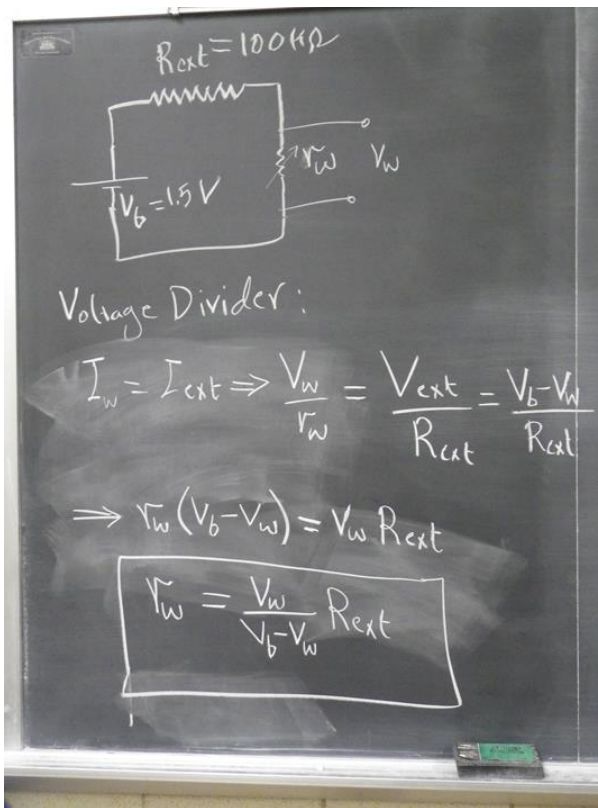 Rext = 100KΩ
rw Vw
Vb = 1.5 V
Voltage Divider:
Iw = Iext ⇒ Vw/rw = Vext/Rext = Vb-Vw/Rext
⇒ rw (Vb-Vw) = Vw Rext
rw = Vw/Vb-Vw Rext